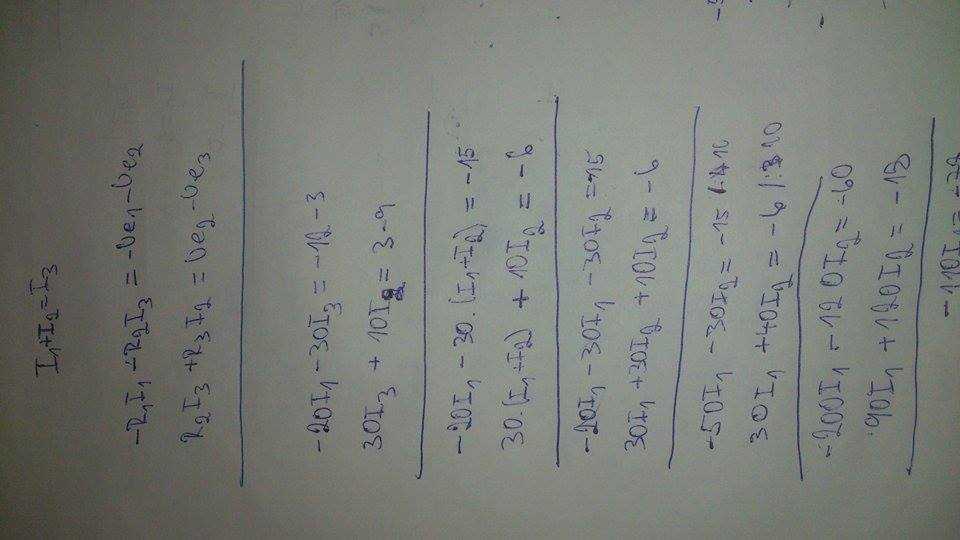 I₁+I₂=I₃
-R₁I₁ -R₂I₃ = -Ue₁-Ue₂
R₂I₃ +R₃I₂ = Ue₂-Ue₃
-20I₁ -30I₃ = -12-3
30I₃ + 10I₂ = 3-9
-20I₁ -30.(I₁+I₂) = -15
30.(I₁+I₂) + 10I₂ = -6
-20I₁ -30I₁ -30I₂ = -15
30I₁ +30I₂ +10I₂ = -6
-50I₁ -30I₂ = -15
30I₁ +40I₂ = -6
-200I₁ -120I₂ = -60
90I₁ +120I₂ = -18
-110I₁ =